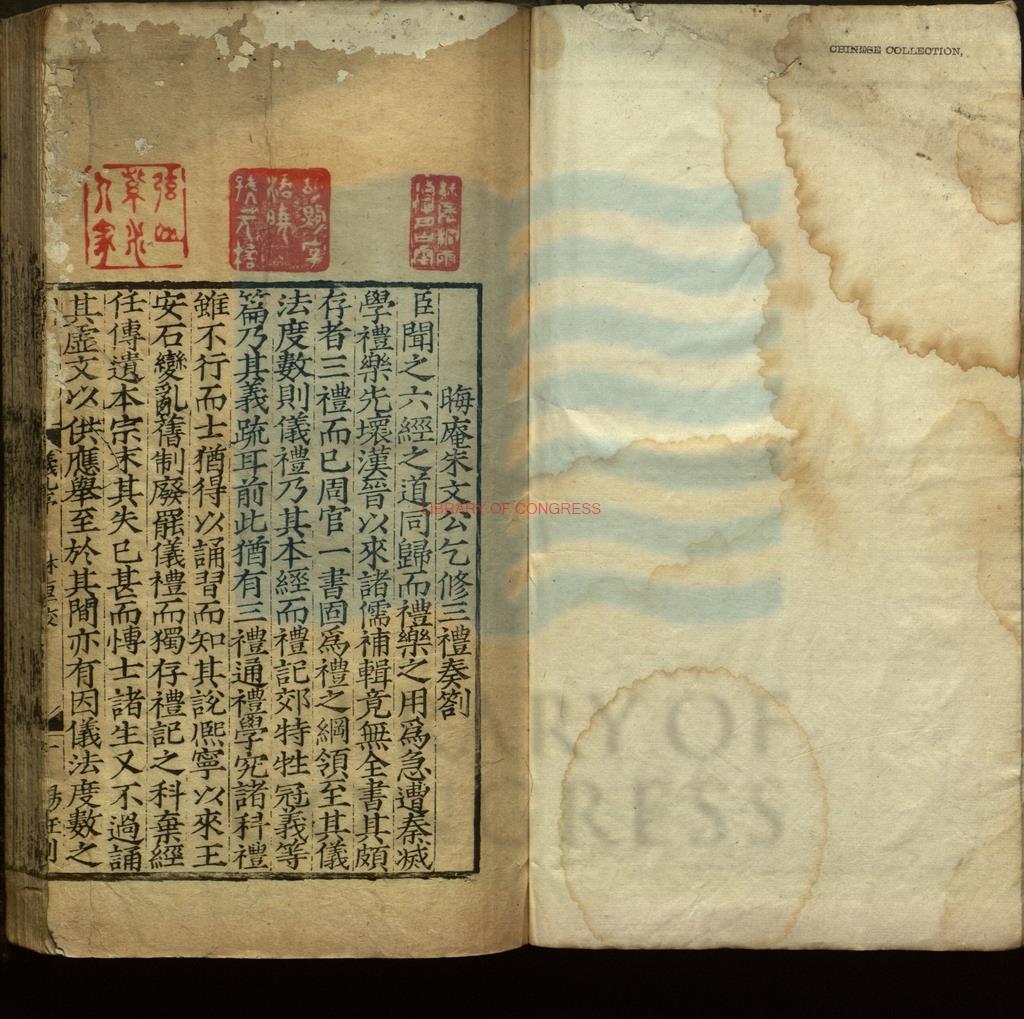 晦庵朱文公乞修三禮奏劄
臣聞之六經之道同歸而禮樂之用爲急遭秦滅
學禮樂先壞漢晉以來諸儒補輯竟無全書其頗
存者三禮而已周官一書固爲禮之綱領至其儀
法度數則儀禮乃其本經而禮記郊特牲冠義等
篇乃其義疏耳前此猶有三禮通禮學究諸科禮
雖不行而士猶得以誦習而知其說熙寧以來王
安石變亂舊制廢罷儀禮而獨存禮記之科棄經
任傳遺本宗末其失已甚而博士諸生又不過誦
其虛文以供應舉至於其間亦有因儀法度數之
CHINESE COLLECTION,
LIBRARY OF CONGRESS